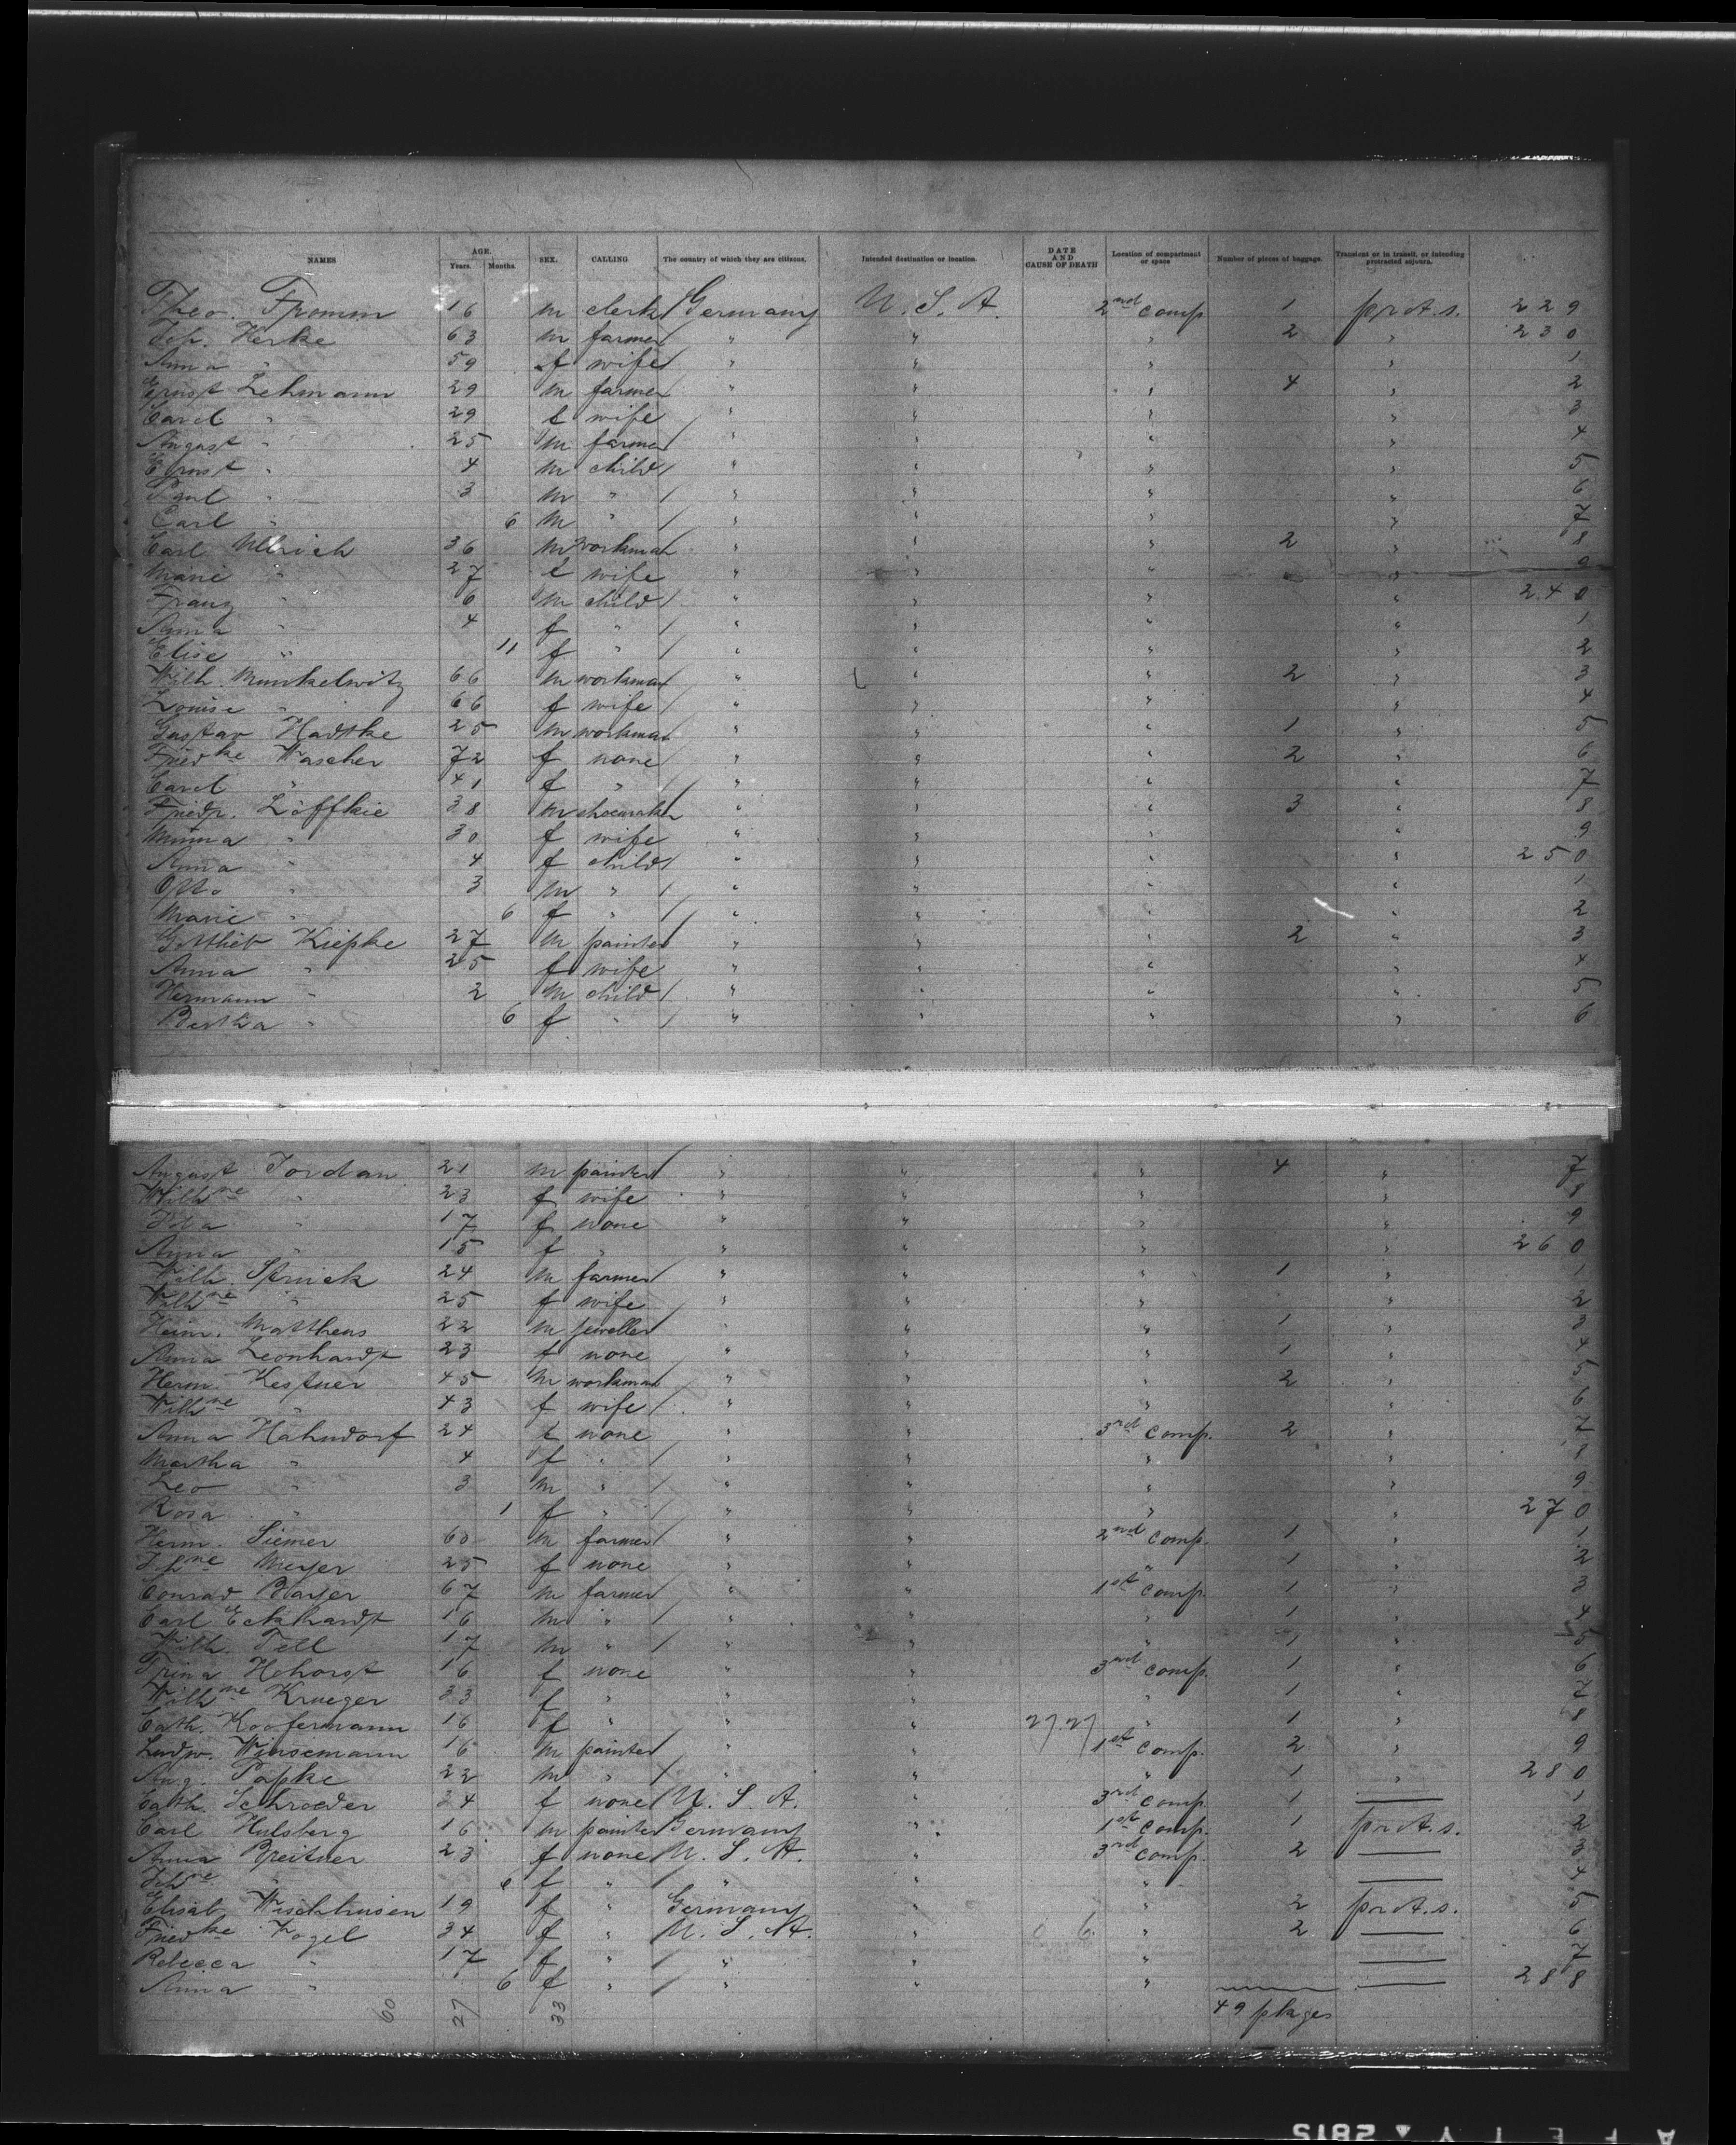 NAMES AGE. Years. Months. SEX. CALLING The country of which they are citizens. Intended destination or location. DATE AND CAUSE OF DEATH Location of compartment or space Number of pieces of baggage. Transient or in transit, or intending protracted sojourn.
Theo. Fromm 16 m clerk Germany U. S. A. 2nd comp 1 protr. s. 229
Joh. Kerke 63 m farmer " " " 2 " 230
Anna " 59 f wife " " " " 1
Ernst Lehmann 29 m farmer " " " 4 " 2
Carol. " 29 f wife " " " " 3
August " 25 m farmer " " " " 4
Ernst " 4 m child " " " " 5
Paul " 3 m " " " " " 6
Carl " 6 m " " " " " 7
Carl Ullrich 36 m workman " " " 2 " 8
Marie " 27 f wife " " " " 9
Franz " 6 m child " " " " 240
Anna " 4 f " " " " " 1
Elise " 11 f " " " " " 2
Wilh. Munkelwitz 66 m workman " " " 2 " 3
Louise " 66 f wife " " " " 4
Gustav Hadtke 25 m workman " " " 1 " 5
Friedke Wascher 72 f none " " " 2 " 6
Carol. " 41 f " " " " " 7
Friedr. Löffkie 38 m shoemaker " " " 3 " 8
Minna " 30 f wife " " " " 9
Anna " 4 f child " " " " 250
Otto " 3 m " " " " " 1
Marie " 6 f " " " " " 2
Gottlieb Kiepke 27 m painter " " " 2 " 3
Anna " 25 f wife " " " " 4
Hermann " 2 m child " " " " 5
Bertha " 6 f " " " " " 6
August Jordan 21 m painter " " " 4 " 7
Wilhne " 23 f wife " " " " 8
Ida " 17 f none " " " " 9
Anna " 15 f " " " " " 260
Wilh. Struck 24 m farmer " " " 1 " 1
Wilhne " 25 f wife " " " " 2
Heinr. Matthens 22 m jeweller " " " 1 " 3
Anna Leonhardt 23 f none " " " 1 " 4
Herm. Kestner 45 m workman " " " 2 " 5
Wilhne " 43 f wife " " " " 6
Anna Hahndorf 24 f none " " 3rd comp. 2 " 7
Martha " 4 f " " " " " 8
Leo " 3 m " " " " " 9
Rosa " 1 f " " " " " 270
Herm. Siemer 60 m farmer " " 2nd comp. 1 " 1
Johne Meyer 25 f none " " " 1 " 2
Conrad Bayer 67 m farmer " " 1st comp. 1 " 3
Carl Eckhardt 16 m " " " " 1 " 4
Wilh. Tell 17 m " " " " 1 " 5
Trina Hohorst 16 f none " " 3rd comp. 1 " 6
Wilhne Krueger 33 f " " " " 1 " 7
Cath. Koofermann 16 f " " " 27.27 " 1 " 8
Ludw. Winsemann 16 m painter " " 1st comp. 2 " 9
Aug. Papke 22 m " " " " 1 " 280
Cath. Schroeder 24 f none U. S. A. " 3rd comp. 1 — 1
Carl Hulsberg 16 m painter Germany " 1st comp. 1 protr. s. 2
Anna Breitner 23 f none U. S. A. " 3rd comp. 2 — 3
Johne " 6 f " " " " — 4
Elisab. Wischhusen 19 f " Germany " " 2 protr. s. 5
Friedke Vogel 34 f " U. S. A. " 0 6 " 2 — 6
Rebecca " 17 f " " " " — 7
Anna " 6 f " " " " — 288
60 27 33 49 pkges